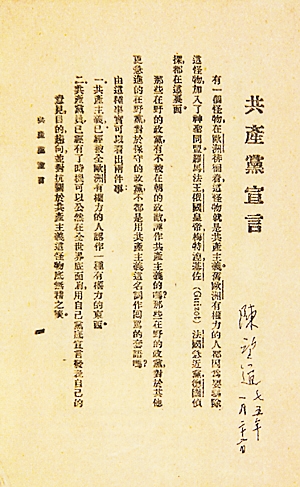 共產黨宣言
有一個怪物，在歐洲徘徊着，這怪物就是共產主義。舊歐洲有權力的人都因為要驅除
這怪物，加入了神聖同盟。羅馬法王，俄國皇帝，梅特涅，基佐（Guizot），法國急進黨，德國偵
探，都在這裏面。
那些在野的政黨，有不被在朝的政敵，誣作共產主義的嗎？那些在野的政黨，對於其他
更急進的在野黨，對於保守的政黨，不都是用共產主義這名詞作回罵的套語嗎？
由這種事實可以看出兩件事：
一、共產主義，已經被全歐洲有權力的人認作一種有權力的東西。
二、共產黨員，已經有了時機可以公然在全世界底面前，用自己黨底宣言發表自己的
意見，目的，趨向，並對抗關於共產主義這怪物底無稽之談。
共產黨宣言
陳望道
七五年
一月二十二日